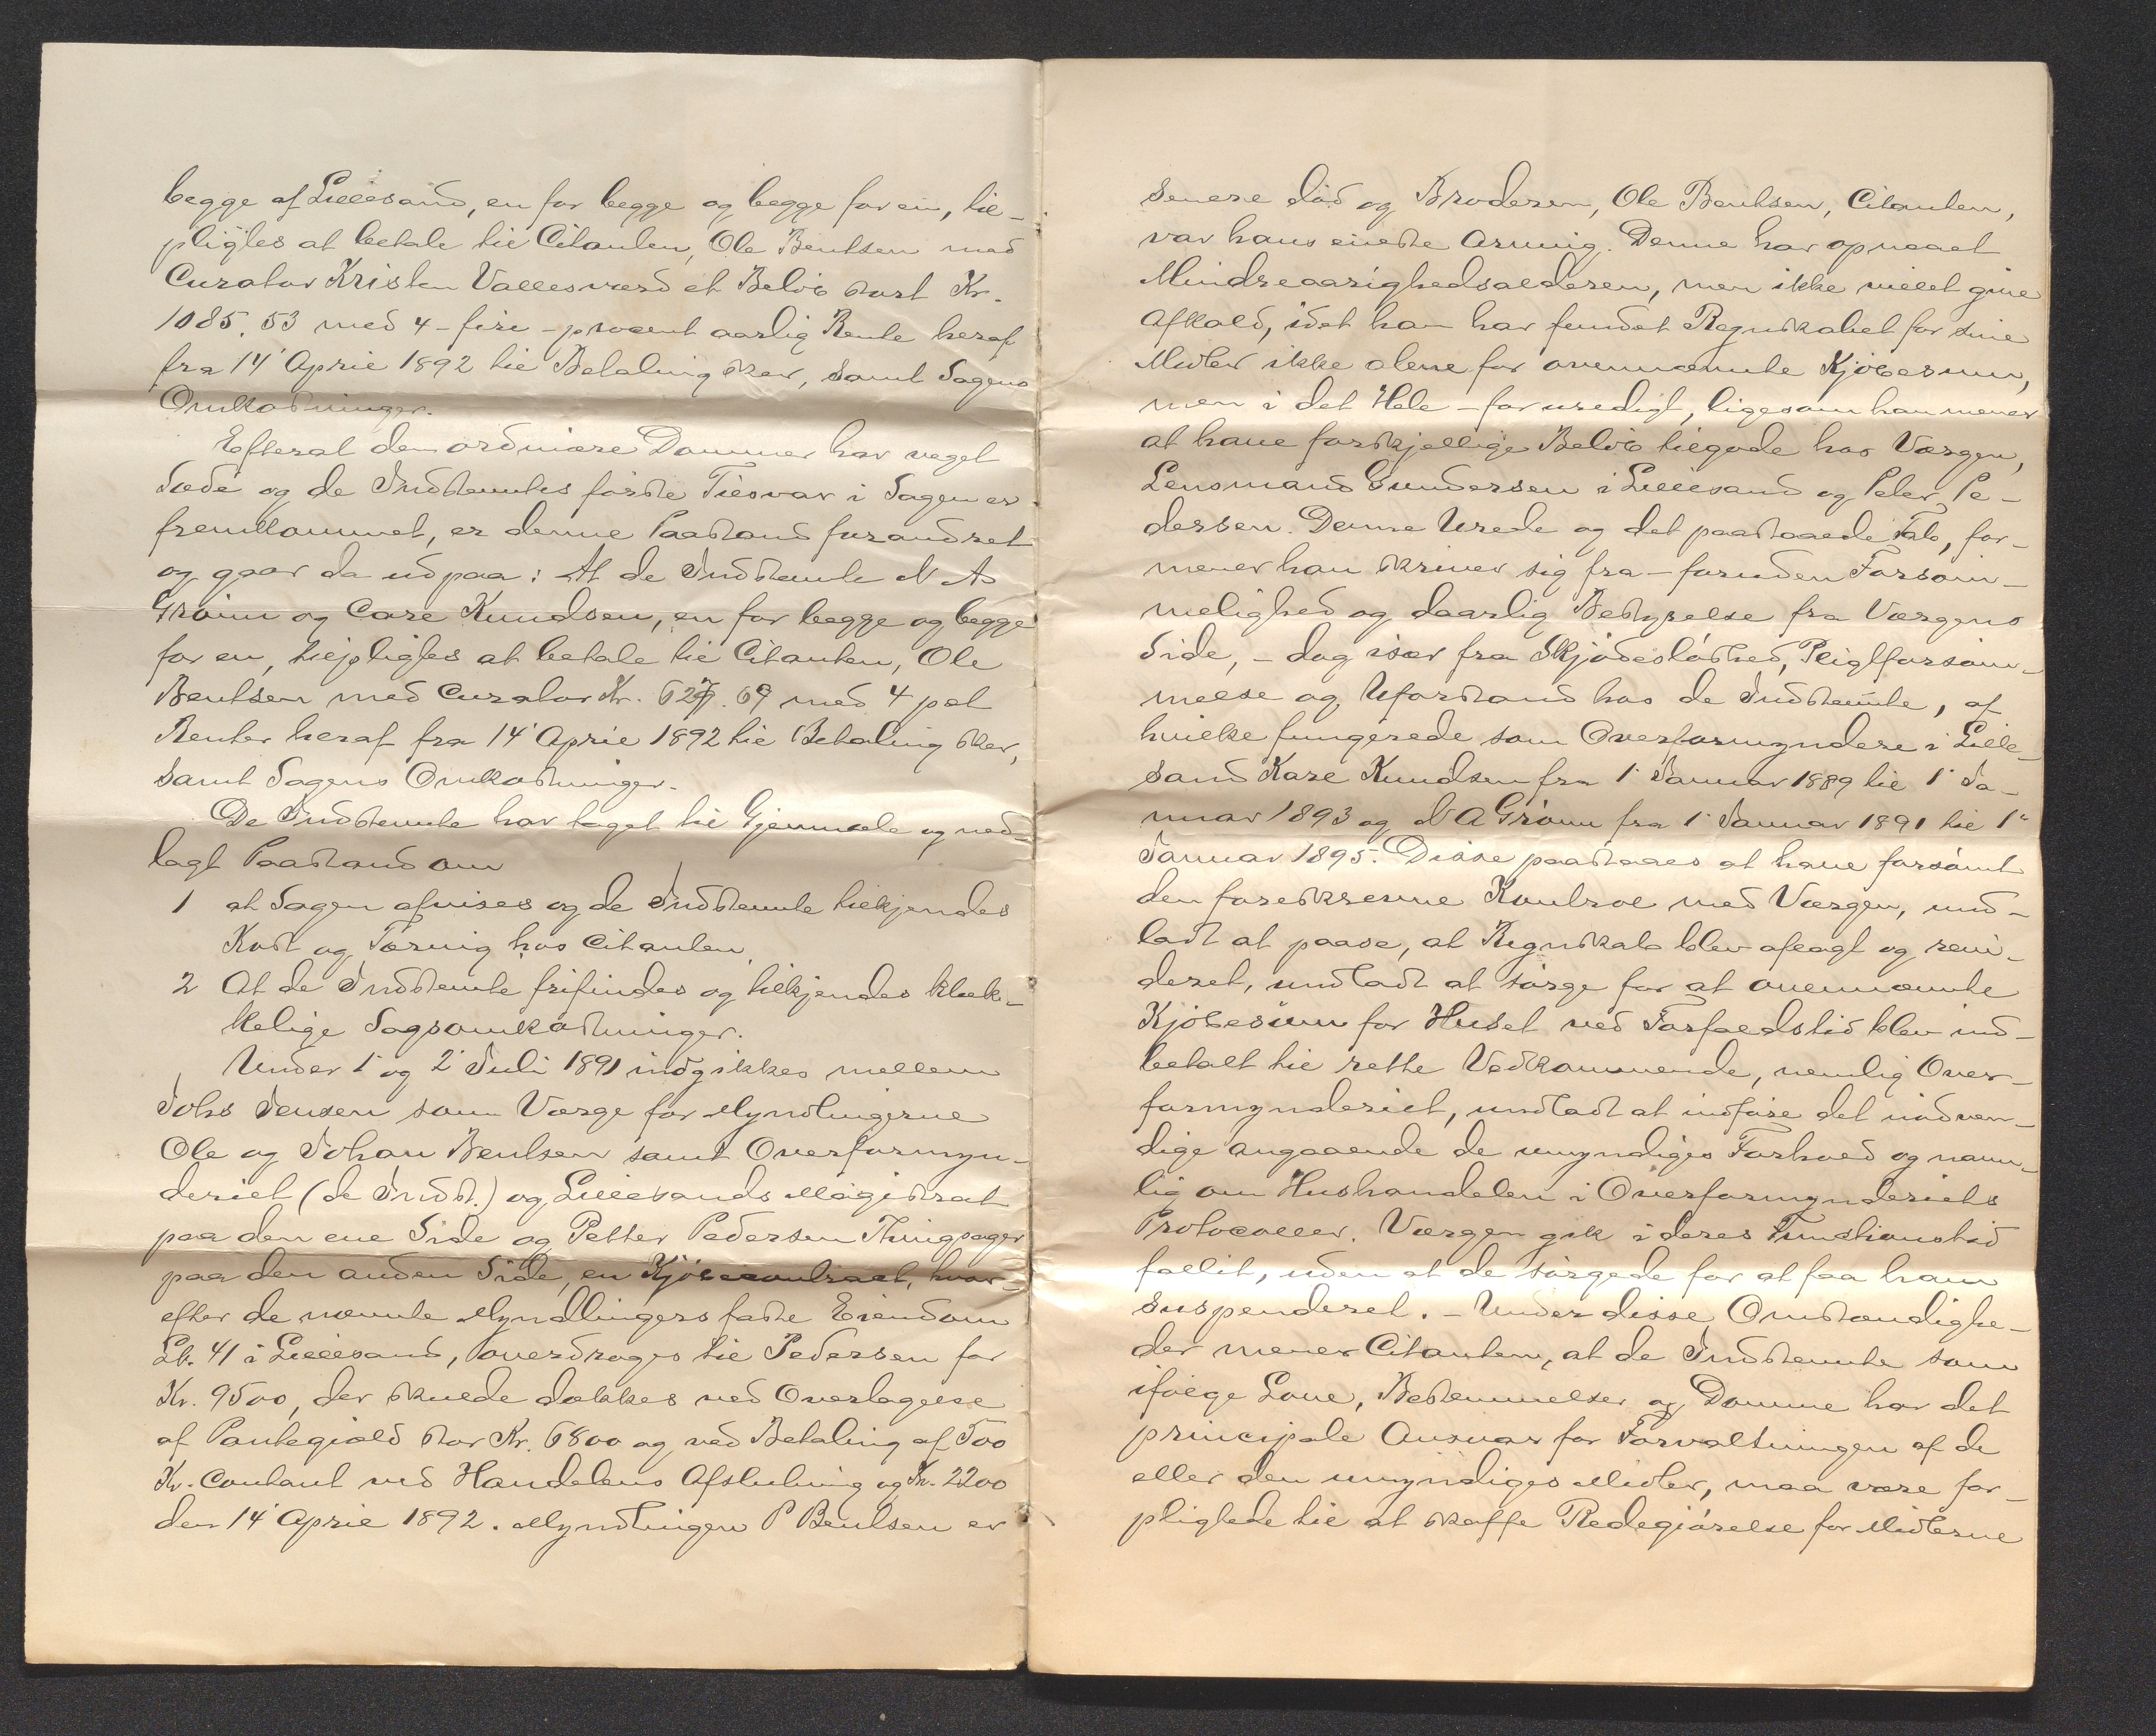 begge af Lillesand, en for begge og begge for en, til-
pligtes at betale til Citanten, Ole Bentsen med
Curator Kristen Vallesværd et Beløb stort Kr.
1085.53 med 4 - fire - procent aarlig Rente heraf
fra 14' April 1892 til Betaling sker, samt Sagens
Omkostninger.
Efterat den ordinære Dommer har veget
Sæde og de Indstemtes første Tilsvar i Sagen er
fremkommet, er denne Paastand forandret
og gaar da ud paa: At de Indstemte N A
Grønn og Care Knudsen, en for begge og begge
for en, tilpligtes at betale til Citanten, Ole
Bentsen med Curator Kr. 627.69 med 4 pct
Renter heraf fra 14' April 1892 til Betaling sker,
samt Sagens Omkostninger.
De Indstemte har taget til Gjenmæle og ned-
lagt Paastand om
1 at Sagen afvises og de Indstemte tilkjendes
Kost og Tæring hos Citanten.
2 At de Indstemte frifindes og tilkjendes klæk-
kelige Sagsomkostninger.
Under 1' og 2' Juli 1891 indgikkes mellem
Johs Jensen som Værge for Myndlingerne
Ole og Johan Bentsen samt Overformyn-
deriet (de Indst.) og Lillesands Magistrat
paa den ene Side og Petter Pedersen Thingsager
paa den anden Side, en Kjøbecontract, hvor-
efter de nævnte Myndlingers faste Eiendom
Lb. 41 i Lillesand, overdroges til Pedersen for
Kr. 9500, der skulde dækkes ved Overtagelse
af Pantegjæld stor Kr. 6800 og ved Betaling af 500
Kr. Contant ved Handelens Afslutning og Kr. 2200
den 14' April 1892. Myndlingen P Bentsen er
senere død og Broderen, Ole Bentsen, Citanten,
var hans eneste Arving. Denne har opnaaet
Mindreaarighedsalderen, men ikke villet give
Afkald, idet han har fundet Regnskabet for sine
Midler ikke alene for ovennævnte Kjøbesum,
men i det Hele - for uredigt, ligesom han mener
at have forskjellige Beløb tilgode hos Værgen,
Lensmand Gundersen i Lillesand og Peter Pe-
dersen. Denne Urede og det paastaaede Tab, for-
mener han skriver sig fra - foruden Forsøm-
melighed og daarlig Bestyrelse fra Værgens
Side, - dog især fra Skjødesløshed, Pligtforsøm-
melse og Uforstand hos de Indstemte, af
hvilke fungerede som Overformyndere i Lille-
sand Kare Knudsen fra 1' Januar 1889 til 1' Ja-
nuar 1893 og N A Grønn fra 1' Januar 1891 til 1'
Januar 1895. Disse paastaaes at have forsømt
den foreskrevne Kontrol med Værgen, und-
ladt at paase, at Regnskab blev aflagt og revi-
deret, undladt at sørge for at ovennævnte
Kjøbesum for Huset ved Forfaldstid blev ind-
betalt til rette Vedkommende, nemlig Over-
formynderiet, undladt at indføre det nødven-
dige angaaende de umyndiges Forhold og navn-
lig om Hushandelen i Overformynderiets
Protocoller. Værgen gik i deres Funktionstid
fallit, uden at de sørgede for at faa ham
suspenderet. - Under disse Omstændighe-
der mener Citanten, at de Indstemte som
ifølge Love, Bestemmelser og Domme har det
principale Ansvar for Forvaltningen af de
eller den umyndiges Midler, maa være for-
pligtede til at skaffe Redegjørelse for Midlerne